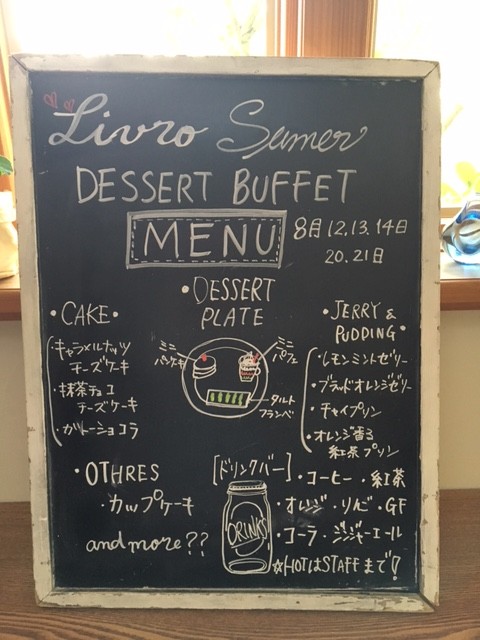 Livro Sumer
DESSERT BUFFET
MENU
8月12,13,14日
20.21日
・CAKE・
・キャラメルナッツ
チーズケーキ
・抹茶チョコ
チーズケーキ
・ガトーショコラ
・DESSERT
PLATE
ミニ
パンケーキ
ミニ
パフェ
タルト
フランベ
・JERRY &
PUDDING・
・レモンミントゼリー
・ブラッドオレンジゼリー
・チャイプリン
・オレンジ香る
紅茶プリン
・OTHRES
・カップケーキ
and more??
[ドリンクバー]
DRINKS
・コーヒー・紅茶
・オレンジ・りんご・GF
・コーラ・ジンジャーエール
☆HOTはSTAFFまで!